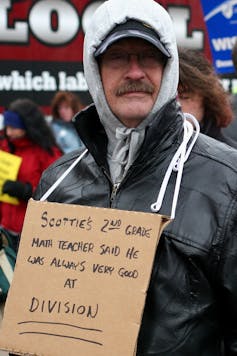 LOCAL
which lab
WI
SCOTTIE'S 2ND GRADE
MATH TEACHER SAID HE
WAS ALWAYS VERY GOOD
AT
DIVISION